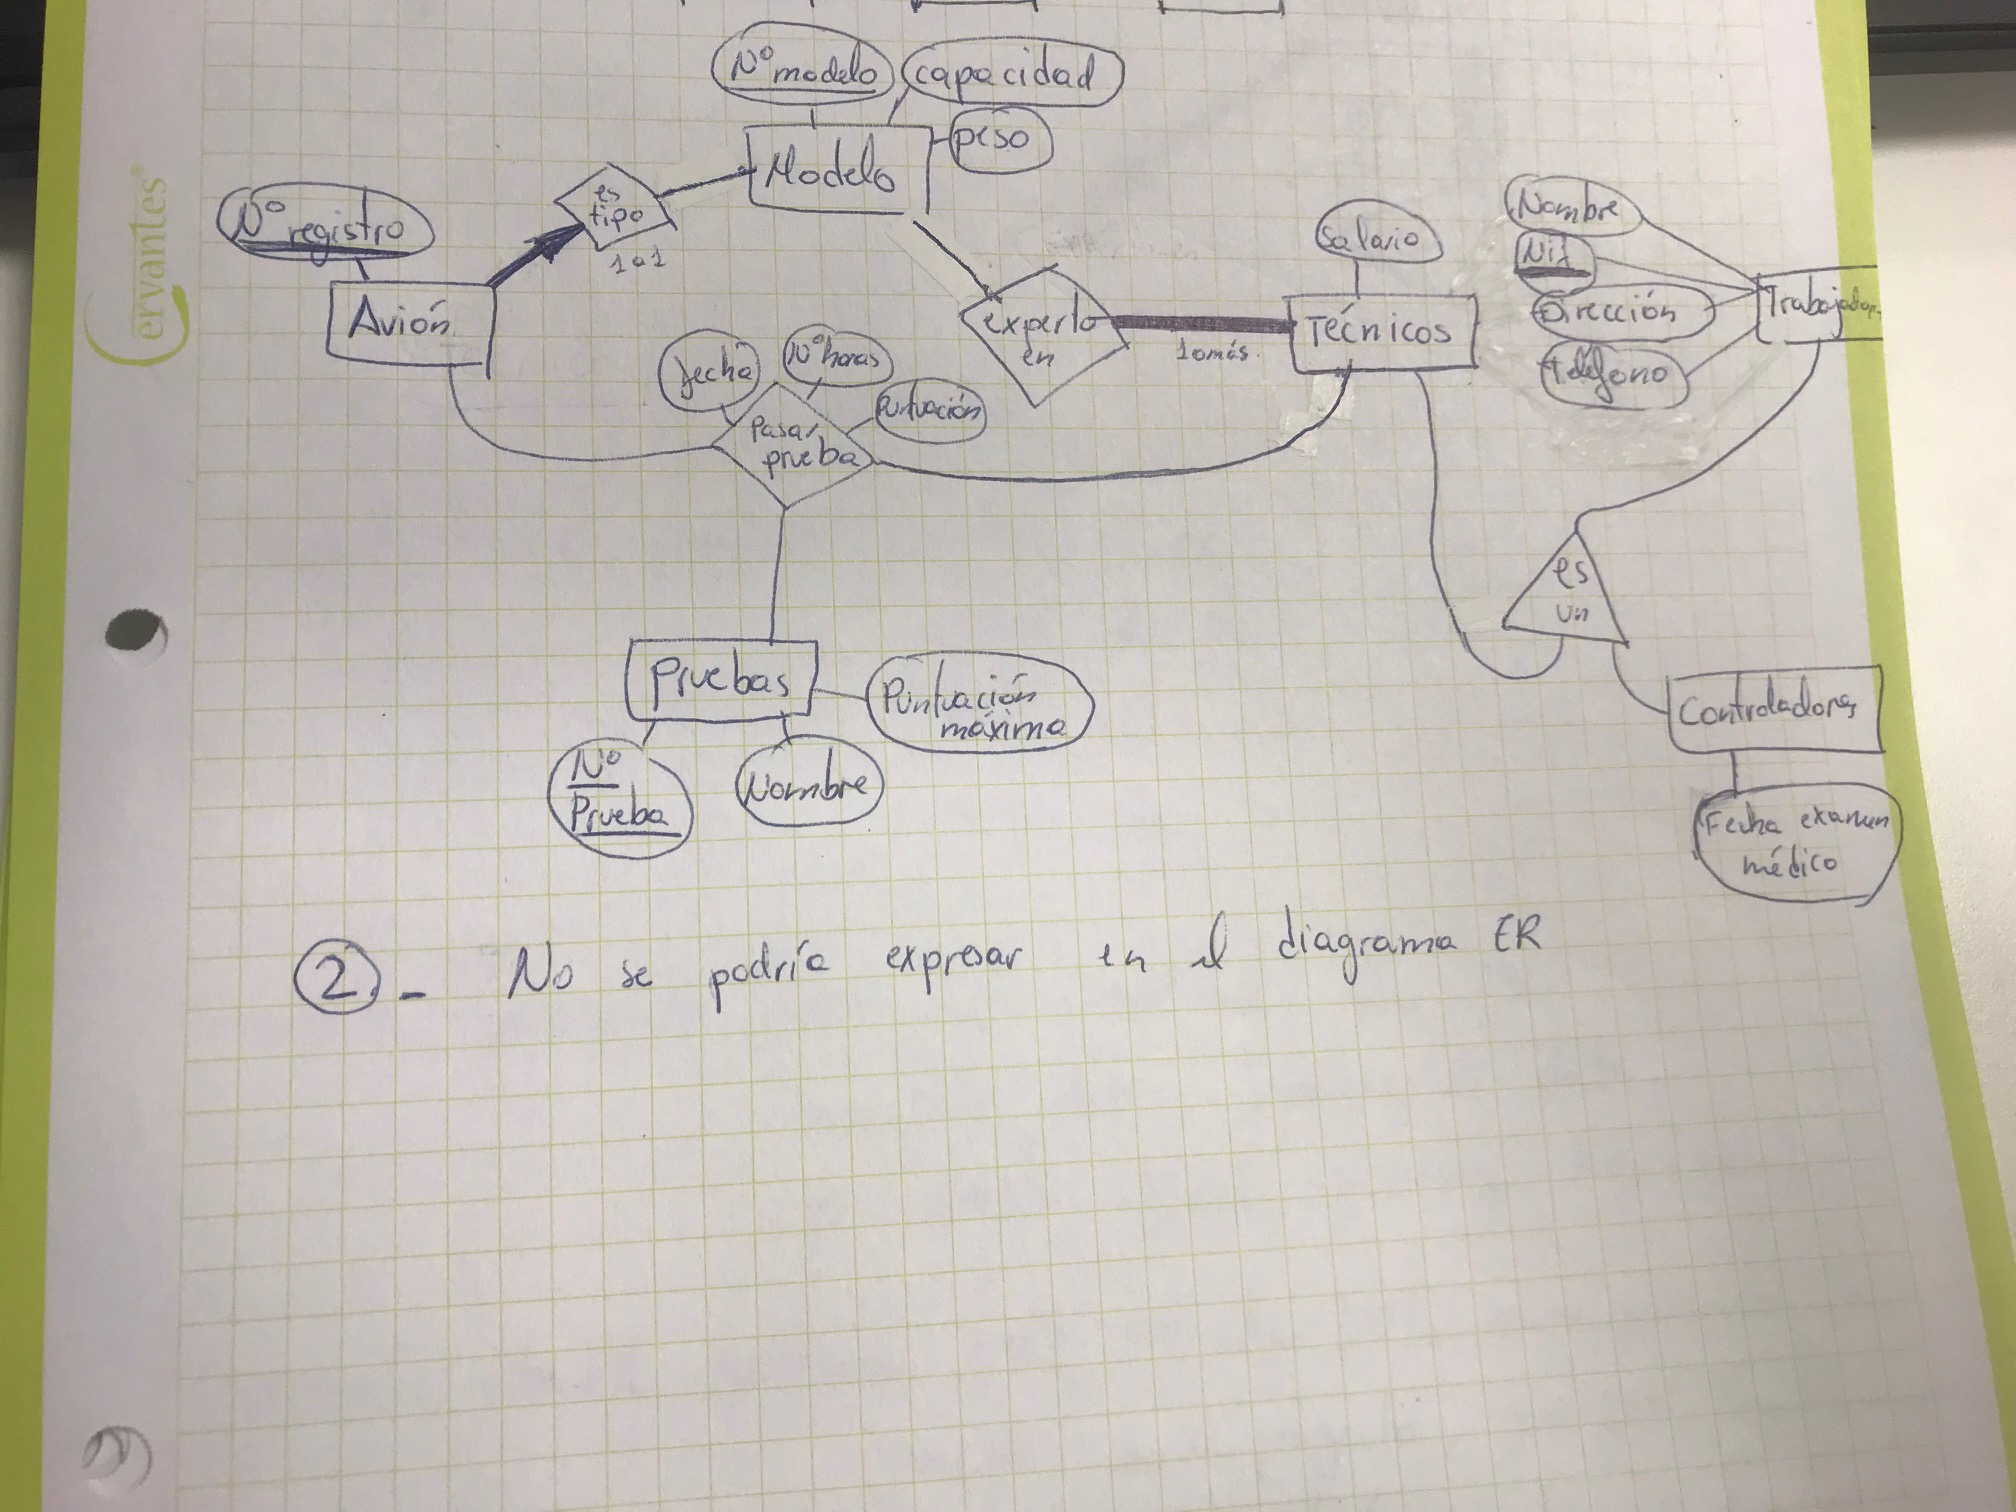 Nº modelo
capacidad
peso
Modelo
es
tipo
1 a 1
Nº
registro
Avión
experto
en
1 o más
Salario
Técnicos
Nombre
Nif
Dirección
Teléfono
Trabajador
fecha
Nº horas
Puntuación
Pasar
prueba
es
un
Pruebas
Puntuación
máxima
Nº
Prueba
Nombre
Controladores
Fecha examen
médico
2.- No se podría expresar en el diagrama ER
ervantes®